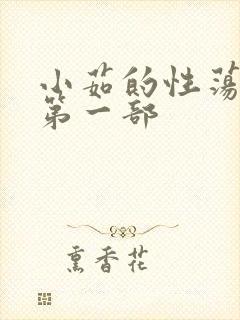 小茹的性荡
第一部
熏香花